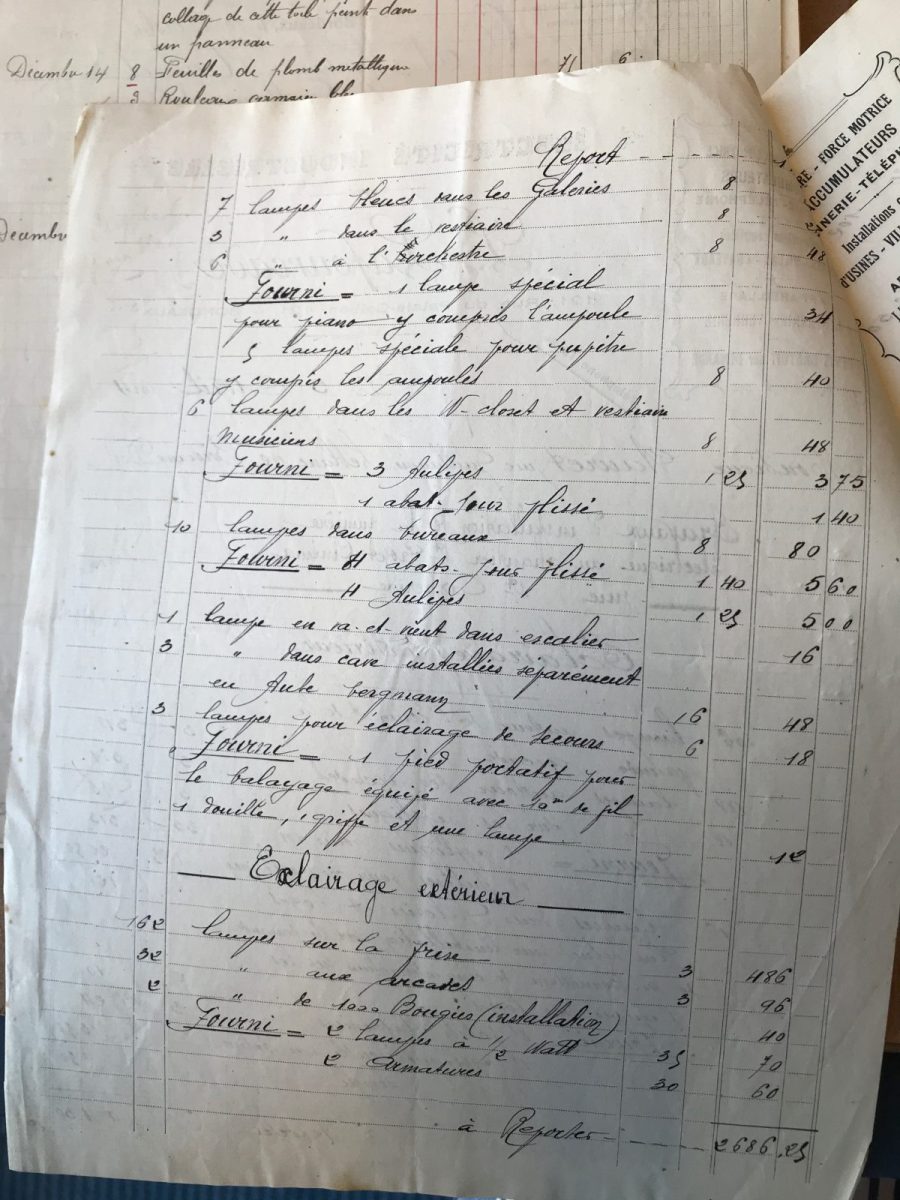 collage de cette toile peint dans
un panneau
Décembre 14 8 Feuilles de plomb metallique 71 6
3 Rouleaux
Decembre
RE - FORCE MOTRICE
ACCUMULATEURS
NNERIE-TÉLÉPH
Installations
d'USINES - VIL
Report
7 lampes bleues dans les Galeries 8
3 " dans le vestiaire 8
6 " à l'orchestre 8 48
Fourni = 1 lampe spécial
pour piano y compris l'ampoule 34
5 lampes spéciale pour pupitre
y compis les ampoules 8 40
6 lampes dans les W-closet et vestiair
musiciens 8 48
Fourni = 3 Tulipes 1 25 3 75
1 abat-jour plissé 1 40
10 lampes dans bureaux 8 80
Fourni = 4 abats-jour plissé 1 40 5 60
4 Tulipes 1 25 5 00
1 lampe en va-et vient dans escalier 16
3 " dans cave installées séparément
en Tube bergmann 16 48
3 lampes pour éclairage de secours 6 18
" Fourni = 1 pied portatif pour
le balayage équipé avec 10m de fil
1 douille, 1 griffe et une lampe 12
Eclairage extérieur
162 lampes sur la frise 3 486
32 " aux arcades 3 96
2 " de 1000 Bougies (installation) 40
Fourni = 2 lampes à 1/2 Watt 35 70
2 armatures 30 60
à Reporter 2686,25